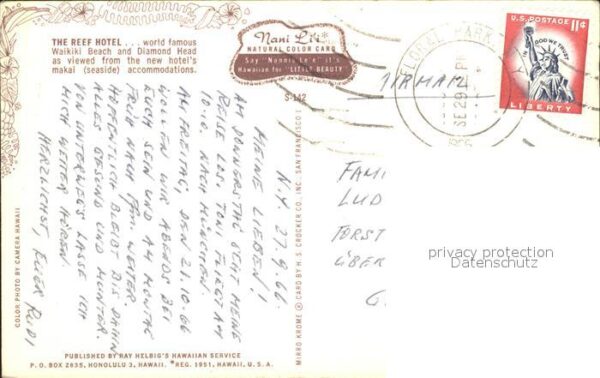 THE REEF HOTEL . . . world famous
Waikiki Beach and Diamond Head
as viewed from the new hotel's
makai (seaside) accommodations.
Nani Li'i*
NATURAL COLOR CARD
Say "Nannie Le'e" it's
Hawaiian for "LITTLE BEAUTY"
S-142
FLORAL PARK
SE 29
PM
1966
U.S. POSTAGE 11¢
IN GOD WE TRUST
LIBERTY
AIRMAIL
N.Y. 27.9.66.
MEINE LIEBEN!
AM DONNERSTAG GEHT MEINE
REISE LOS. TONI FLIEGT AM
10.10. NACH MÜNCHEN.
AM FREITAG, DEN 21.10.66
WOLLEN WIR ABENDS BEI
EUCH SEIN UND AM MONTAG
FRÜH NACH WEITER
HOFFENTLICH BLEIBT BIS DAHIN
ALLES GESUND UND MUNTER.
VON UNTERWEGS LASSE ICH
MICH WEITER HÖREN.
HERZLICHST, EUER RUDI
FAMI
LUD
FORST
ÜBER
G
privacy protection
Datenschutz
COLOR PHOTO BY CAMERA HAWAII
MIRRO KROME ® CARD BY H. S. CROCKER CO., INC. SAN FRANCISCO
PUBLISHED BY RAY HELBIG'S HAWAIIAN SERVICE
P. O. BOX 2835, HONOLULU 3, HAWAII. *REG. 1951, HAWAII, U. S. A.